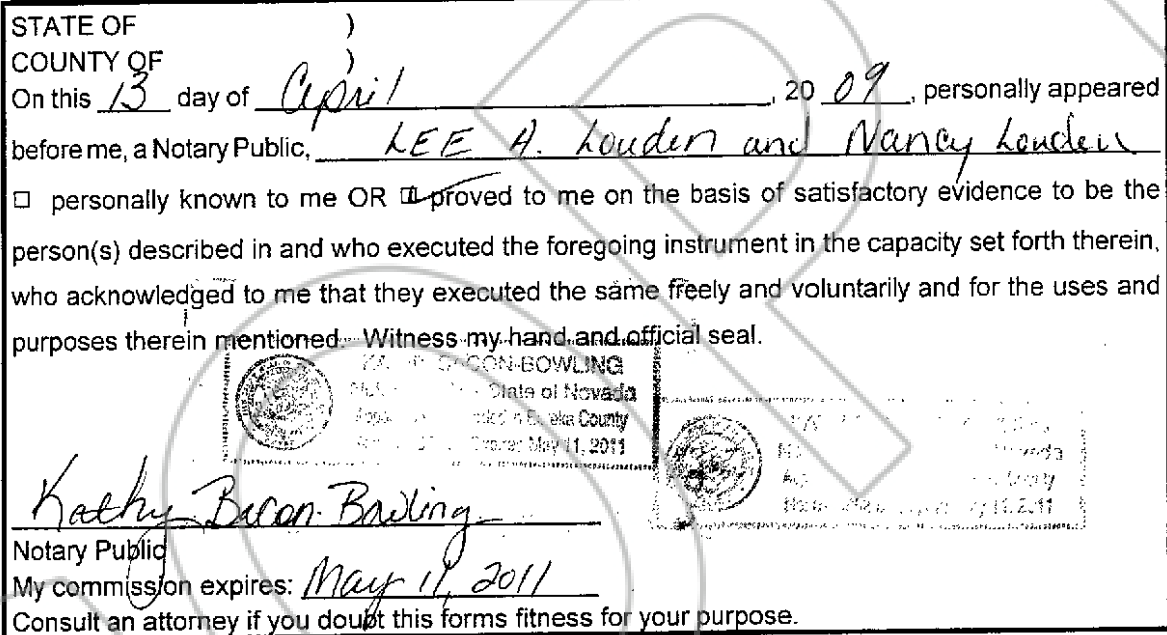 STATE OF )
COUNTY OF )
On this 13 day of April, 20 09, personally appeared
before me, a Notary Public, LEE A. Louden and Nancy Louden
☐ personally known to me OR ☑ proved to me on the basis of satisfactory evidence to be the
person(s) described in and who executed the foregoing instrument in the capacity set forth therein,
who acknowledged to me that they executed the same freely and voluntarily and for the uses and
purposes therein mentioned. Witness my hand and official seal.
BACON-BOWLING
State of Nevada
County
May 11, 2011
Kathy Bacon-Bowling
Notary Public
My commission expires: May 11, 2011
Consult an attorney if you doubt this forms fitness for your purpose.